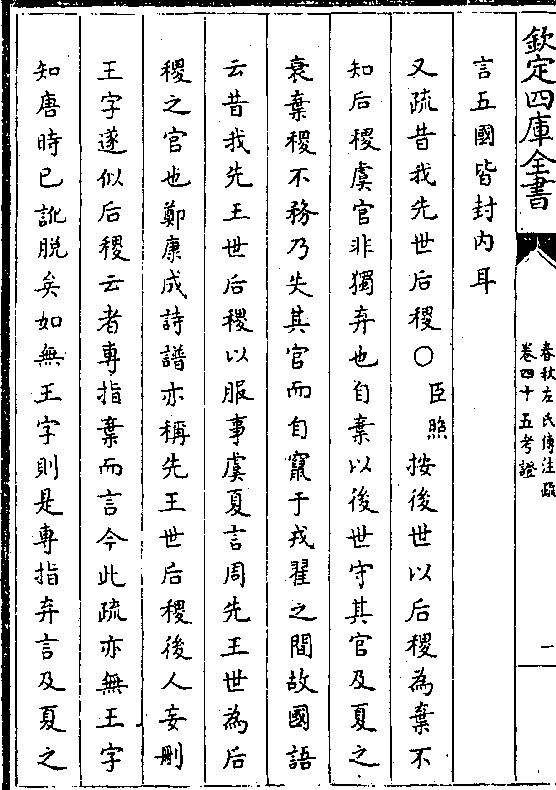 欽定四庫全書
春秋左氏傳注疏
卷四十五考證
一
言五國皆封內耳
又疏昔我先世后稷○臣照按後世以后稷為棄不
知后稷虞官非獨弃也自棄以後世守其官及夏之
衰棄稷不務乃失其官而自竄于戎翟之間故國語
云昔我先王世后稷以服事虞夏言周先王世為后
稷之官也鄭康成詩譜亦稱先王世后稷後人妄刪
王字遂似后稷云者專指棄而言今此疏亦無王字
知唐時已訛脫矣如無王字則是專指弃言及夏之